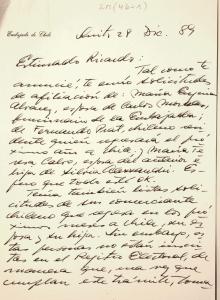 Embajada de Chile
Dic. 89
Estimado Ricardo:
Tal como te
anuncié, te envío solicitudes
de afiliación de: María Eugenia
Alvarez, esposa de Carlos Morales,
funcionario de la Embajada;
de Fernando Puit, chileno
quien regresará el
año a Chile; y María Te
resa Calvo, esposa del anterior e
hija de Silvia Alessandri. Es
pero que todo esté OK.
Tenía también listas soli
citudes de un comerciante
chileno que regresa en los pró
ximos meses a Chile, su es
posa y su hija. Sin embargo, es
tas personas no están inscri
tas en el Registro Electoral, de
manera que, una vez que
cumplan este trámite,